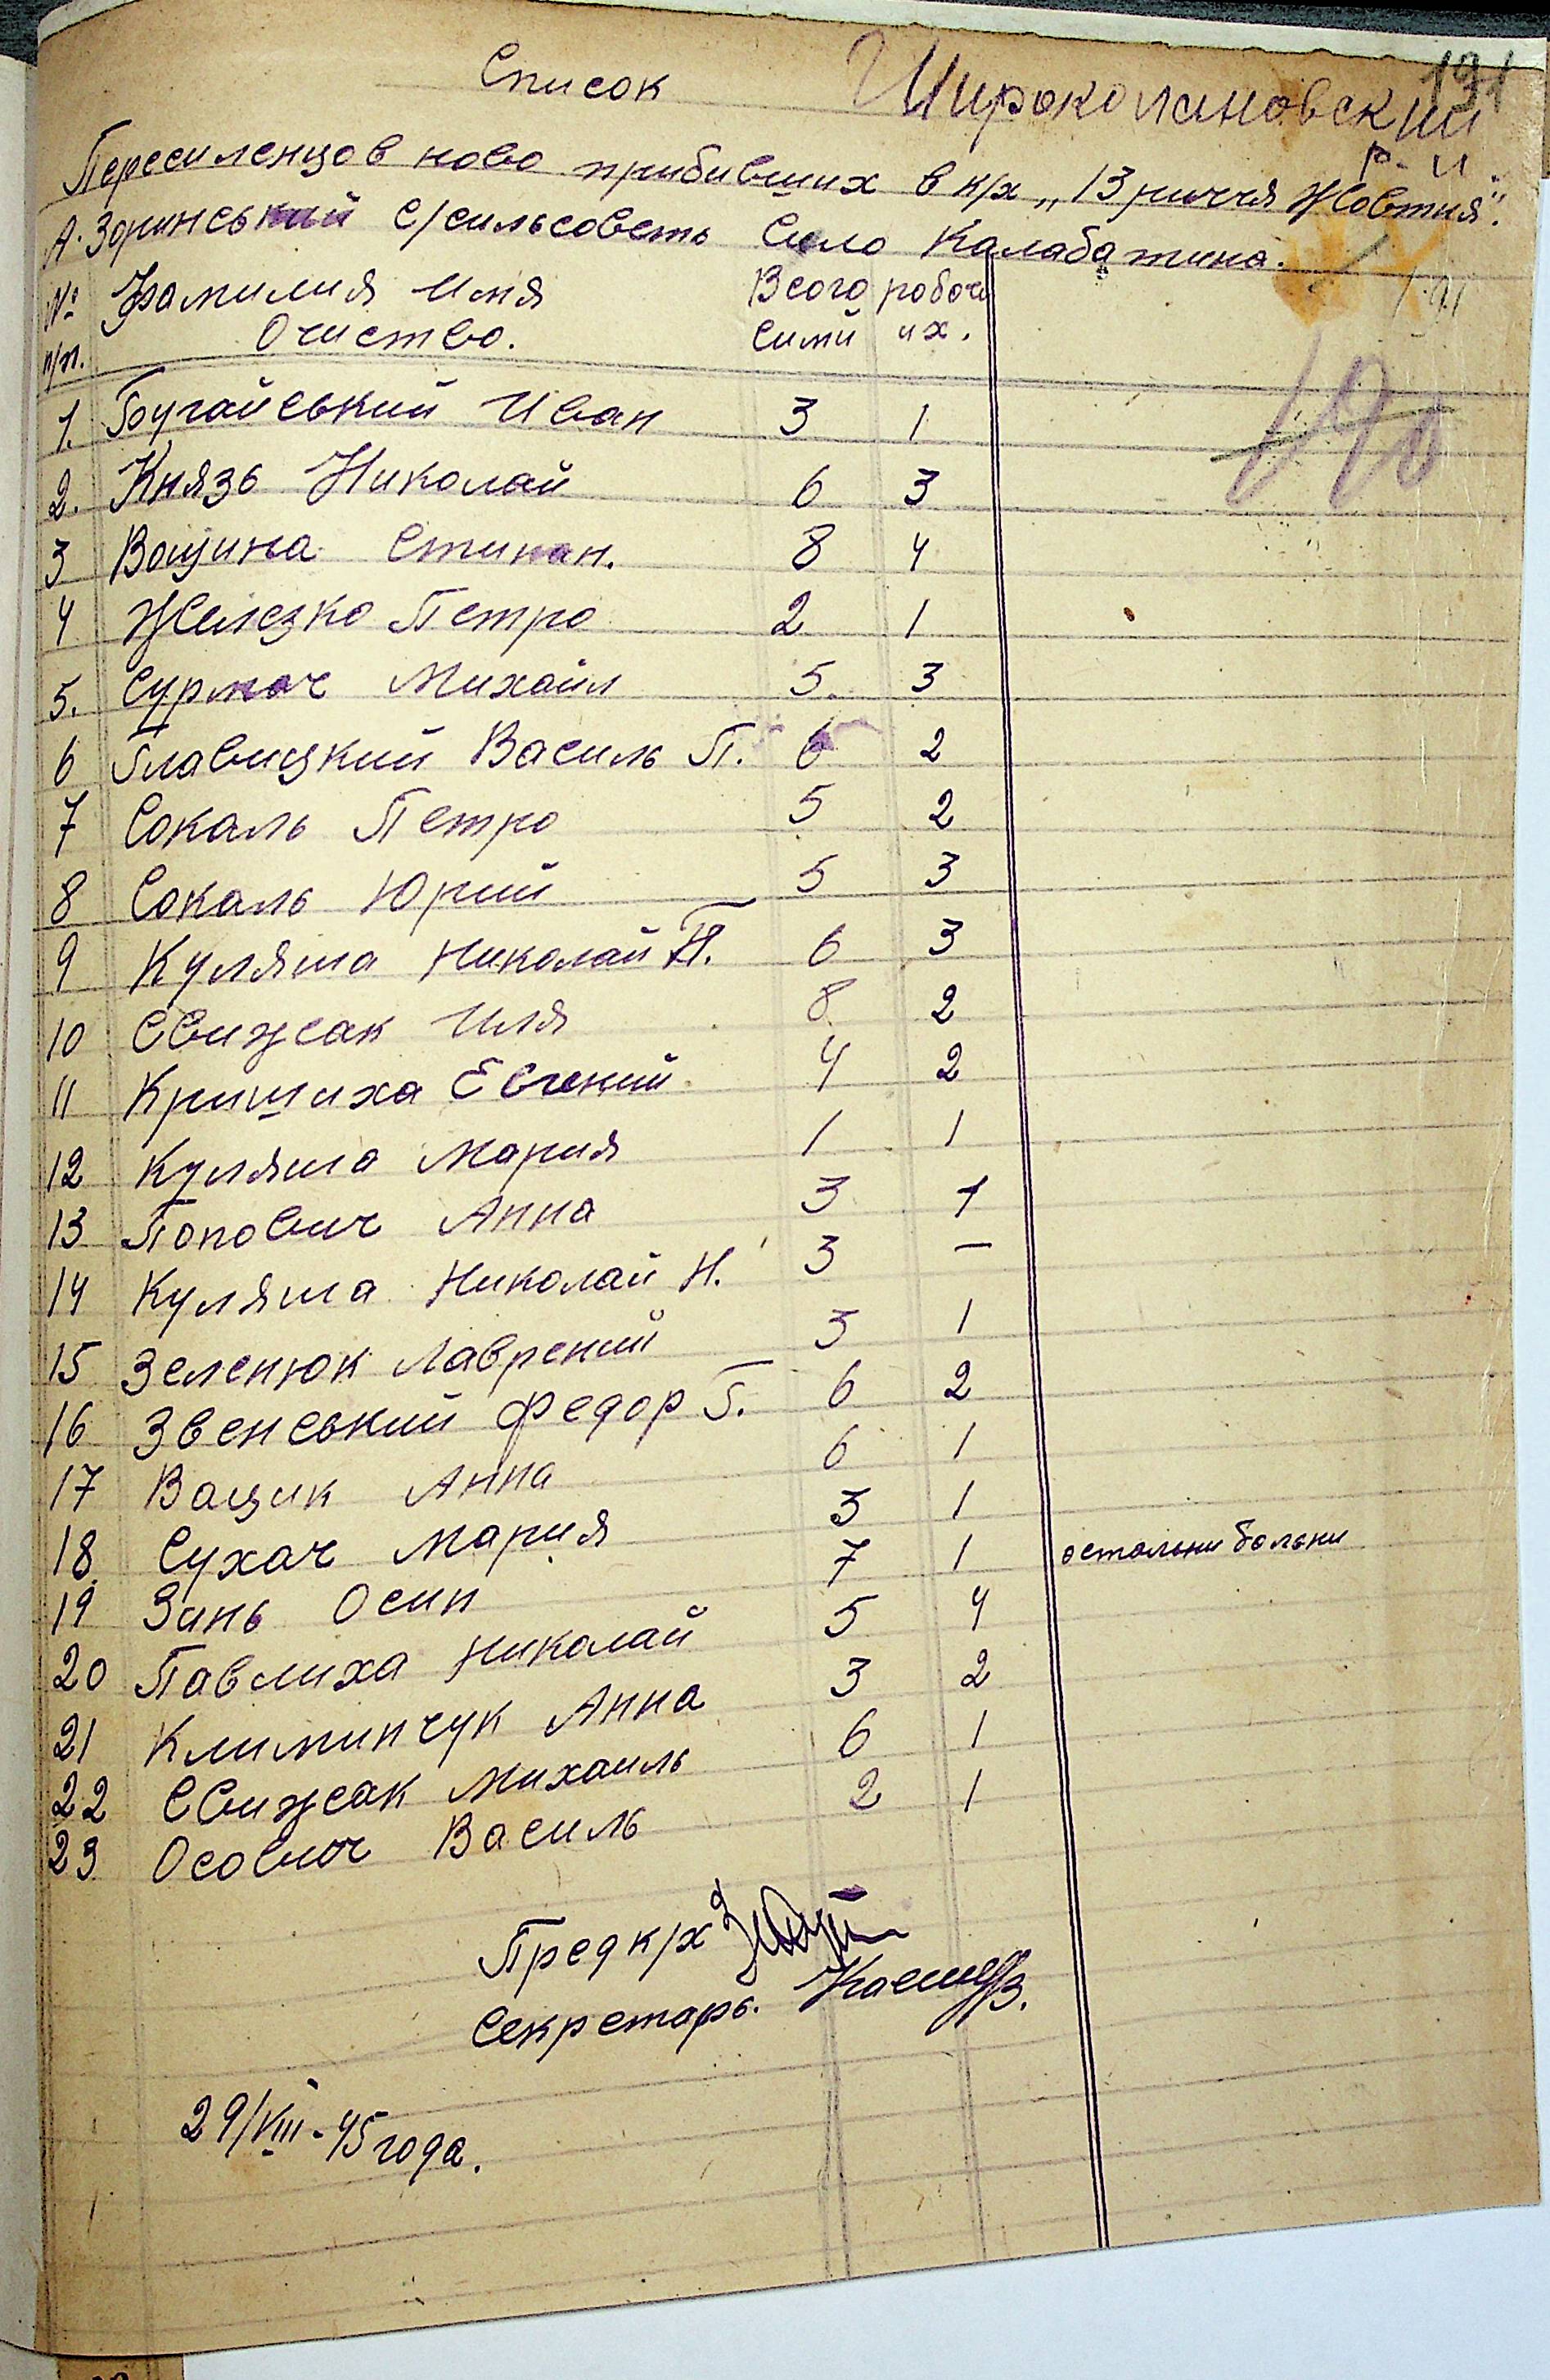 Список
Широколановский
191
р-н
Переселенцов ново прибивших в к/х „13 риччя Жовтня".
А. Зоринський с/сильсоветь Село Калабатина.
№ Фамилия Имя Всого робоч
п/п. Очиство. сими их.
1. Бугайський Иван 3 1
190
2. Князь Николай 6 3
3 Вощина Стипан. 8 4
4 Железко Петро 2 1
5. Сурмач Михаил 5. 3
6 Главицкий Василь П. 6 2
7 Сокаль Петро 5 2
8 Сокаль Юрий 5 3
9 Куляша Николай П. 6 3
10 Свижсак Иля 8 2
11 Кришиха Евгений 4 2
12 Куляша Мария 1 1
13 Попович Анна 3 1
14 Куляша Николай Н. 3 —
15 Зеленюк Лаврений 3 1
16 Звенський Федор Г. 6 2
17 Вацик Анна 6 1
18 Сухач Мария 3 1
19 Зинь Осип 7 1 остальни больни
20 Павлиха Николай 5 4
21 Климинчук Анна 3 2
22 Свижсак Михаиль 6 1
23 Осович Василь 2 1
Пред к/х
Секретарь.
29/VIII-45 года.